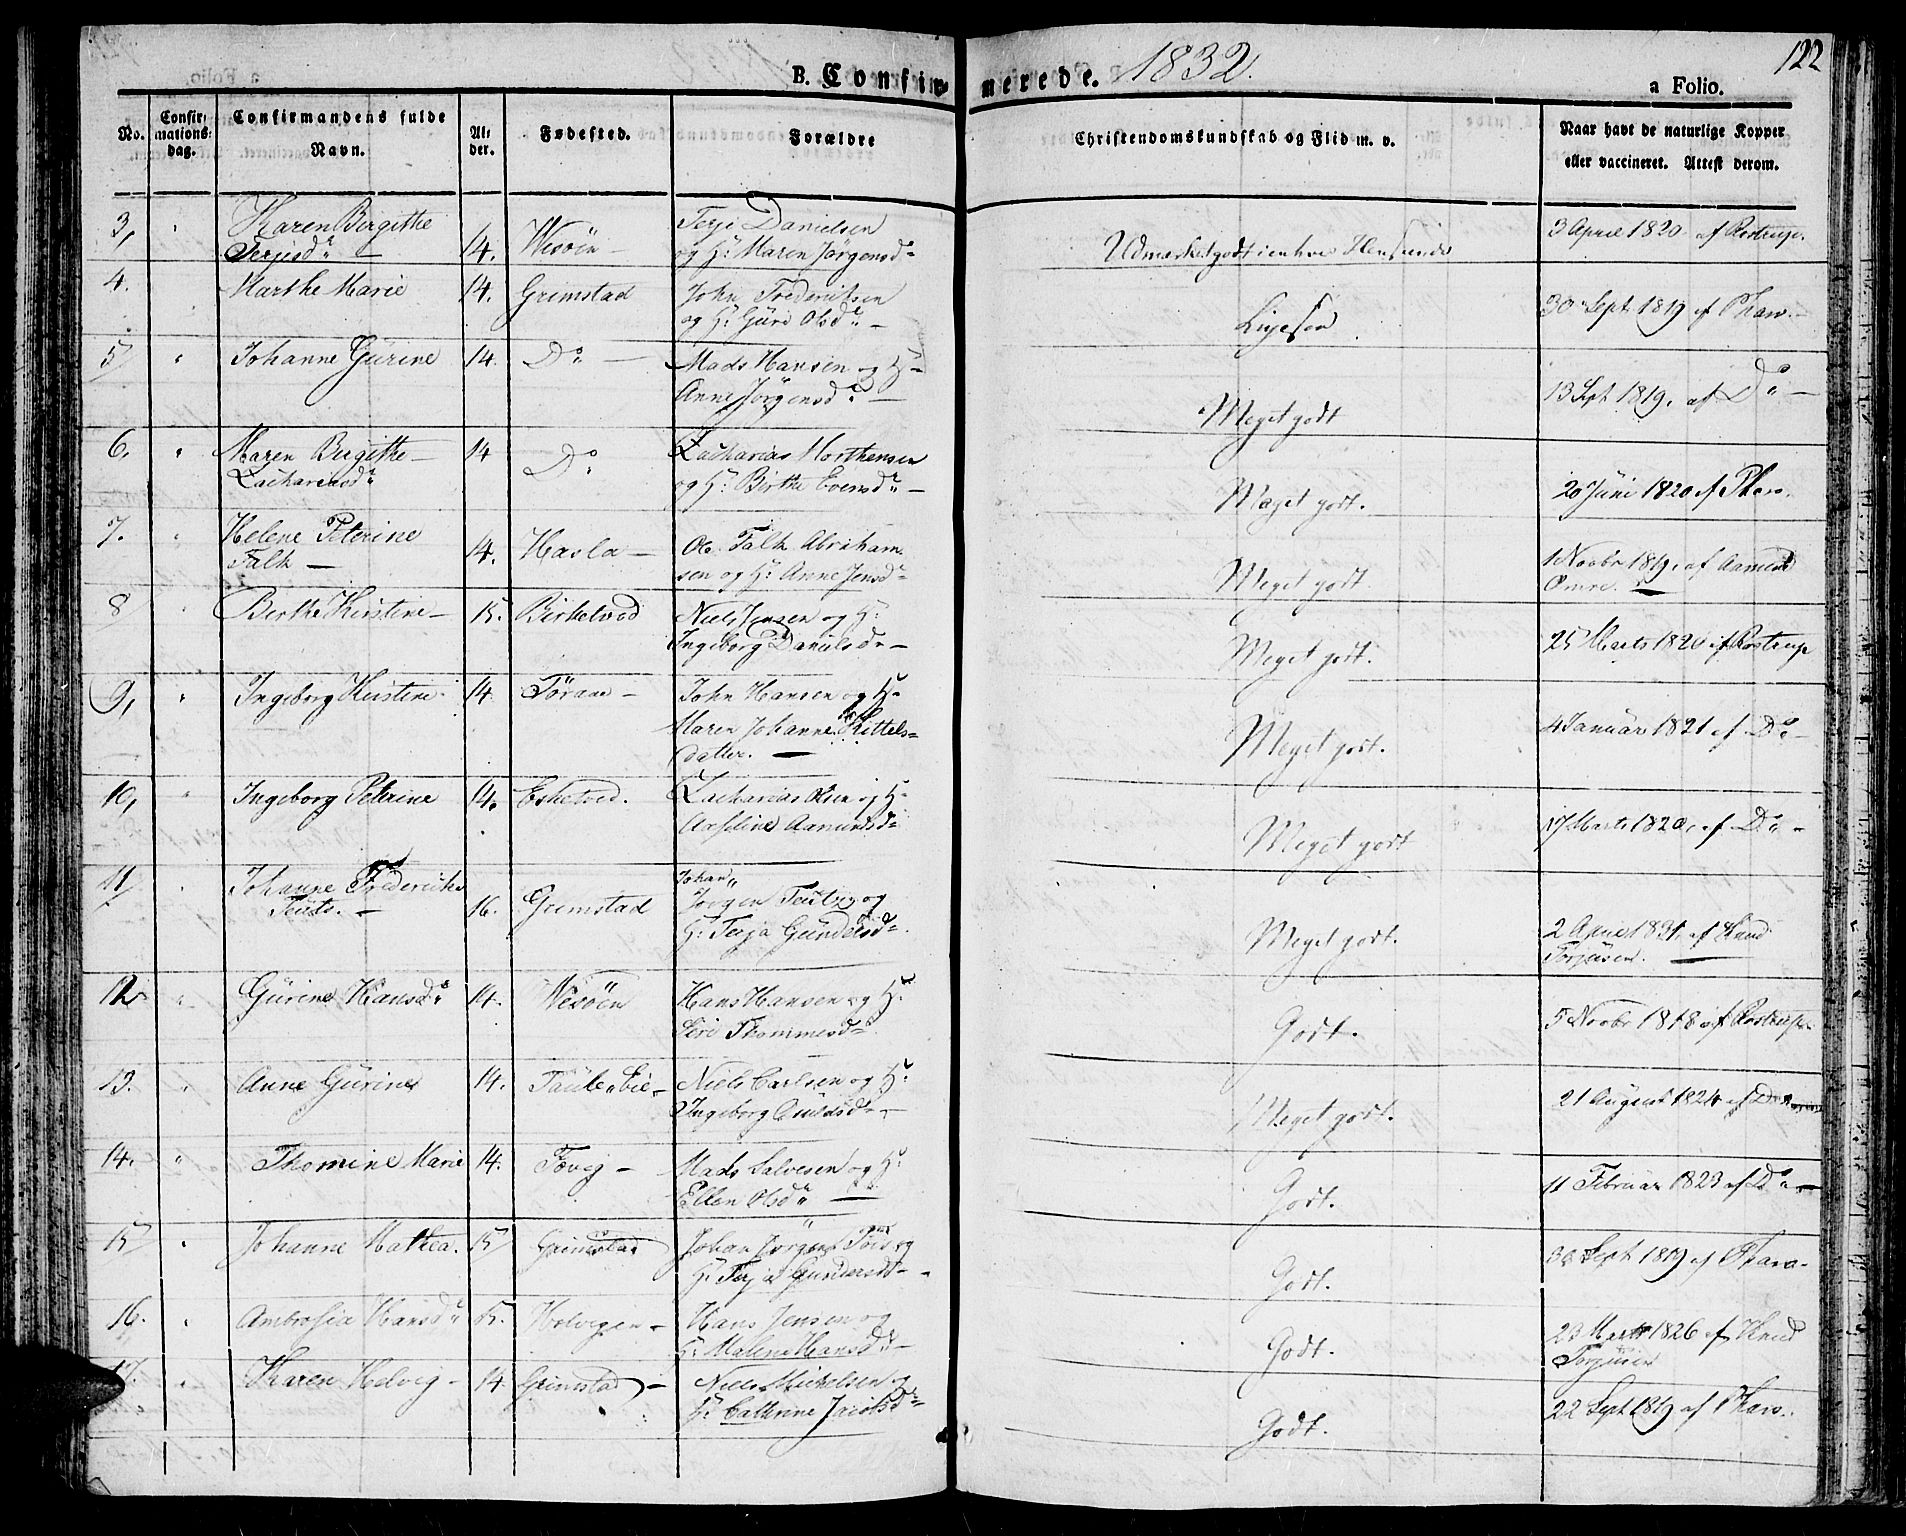 122
B. Confirmerede. 1832. a Folio.
No. Confirmationsdag. Confirmandens fulde Navn. Alder. Fødested. Forældre Christendomskundskab og Flid m. v. Naar havt de naturlige Kopper eller vaccineret. Attest derom.
3, " Karen Birgithe 14. Wesöen – Terje Danielsen 3 April 1820 af Rostrup.
Terjesd. – og H: Maren Jörgensd. Udmærket godt i enhver Hensende
4. Marthe Marie 14. Grimstad John Frederiksen 30 Sept 1819 af Tharo. –
og H: Guri Olsd. – Ligesom
5, " Johanne Gurine 14. Do – Mads Hansen og H. 13 Sept 1819, af Do –
Anne Jörgensd. – Meget godt
6, " Maren Birgithe – 14 Do Zacharias Morthensen 20 Juni 1820 af Tharo.
Zachariasd. og H: Birthe Evensd. – Meget godt.
7. " Helene Peterine 14. Hasla – Ole Falk Abraham- 1 Novbr 1819, af Aamund
Falk – sen og H: Anne Jensd. Meget godt. Omre. –
8 " Birthe Kirstine – 15. Birketved Niels Jensen og H: 25 Marts 1820 af Rostrup
Ingeborg Danielsd. – Meget godt.
9, " Ingeborg Kirstine 14. Törane – John Hansen og H. 4 Januar 1821 af Do –
Maren Johanne Kittels- Meget godt.
datter. –
10, " Ingeborg Peterine 14. Esketved. Zacharias Olsen og H. 17 Marts 1820, af Do –
Aaseline Aamundsd. Meget godt
11, Johanne Frederikke 16. Grimstad Johan
Teuts. – Jörgen Teuts og 2 April 1831, af Knud
H: Terja Gundersd. Meget godt. Torjusen. –
12 " Gurine Hansd. 14. Wesöen Hans Hansen og H: 5 Novbr 1818 af Rostrup
Siri Thommesd. Godt.
13. " Anne Gurine 14. Niels Carlsen og H: 21 August 1824 af Do
Ingeborg – Meget godt.
14. " Thomine Marie 14. Fevig – Mads Salvesen og H: 11 Februar 1823 af Do –
Ellen Olsd. – Godt.
15, " Johanne Mathea. 15, Grimstad Johan Jörgen og 30 Sept 1819 af Tharo.
H: Terja Gundersd. – Godt.
16. " Ambrosia Hansd. 15. Holvigen – Hans Jensen og 23 Marts 1826 af Knud
H: Malene Hansd. – Godt. Torjusen
17. " Karen Helvig – 14. Grimstad – Niels Michelsen og 22 Sept 1819 af Tharo.
H: Cathrine Jacobsd. Godt.